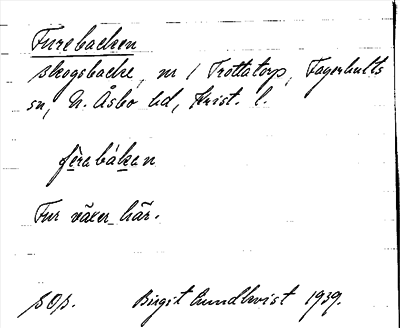 Furebacken
skogsbacke, nr 1 Trottatorp, Fagerhults
sn, N. Åsbo hd, Krist. l.
fèrabákan
Fur växer här.
sOp. Birgit Lundkvist 1939.